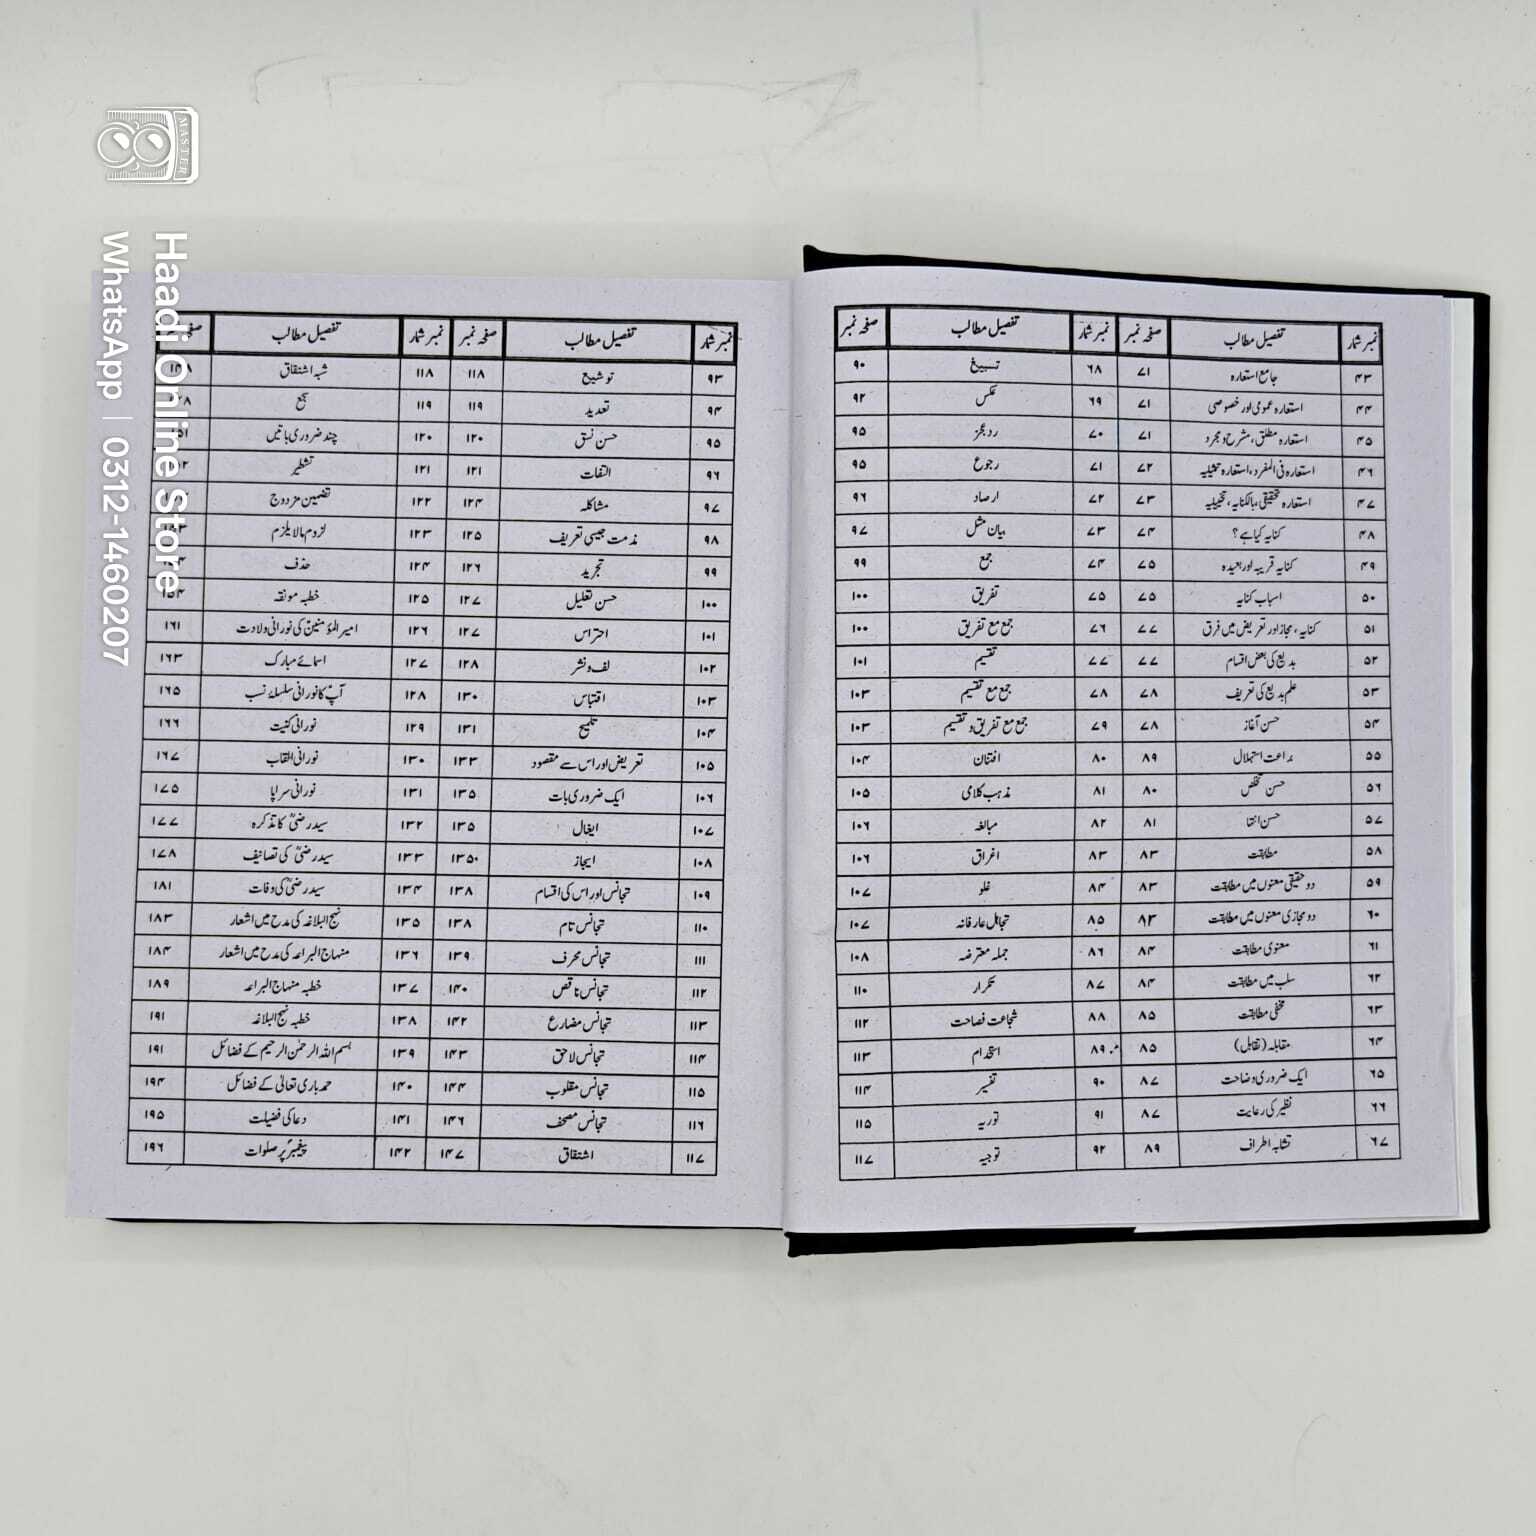 MASTER
Haadi Online Store
WhatsApp | 0312-1460207
نمبر شمار تفصیل مطالب صفحہ نمبر نمبر شمار تفصیل مطالب صفحہ نمبر
۴۳ جامع استعارہ ۷۱ ۶۸ تسبیغ ۹۰
۴۴ استعارہ عمومی اور خصوصی ۷۱ ۶۹ عکس ۹۲
۴۵ استعارہ مطلق، مشرح و مجرد ۷۱ ۷۰ رد عجز ۹۵
۴۶ استعارہ فی المفرد، استعارہ تمثیلیہ ۷۲ ۷۱ رجوع ۹۵
۴۷ استعارہ تحقیقی، بالکنایہ، تخییلیہ ۷۳ ۷۲ ارصاد ۹۶
۴۸ کنایہ کیا ہے؟ ۷۴ ۷۳ بیان مثل ۹۷
۴۹ کنایہ قریبہ اور بعیدہ ۷۵ ۷۴ جمع ۹۹
۵۰ اسباب کنایہ ۷۵ ۷۵ تفریق ۱۰۰
۵۱ کنایہ، مجاز اور تعریض میں فرق ۷۷ ۷۶ جمع مع تفریق ۱۰۰
۵۲ بدیع کی بعض اقسام ۷۷ ۷۷ تقسیم ۱۰۱
۵۳ علم بدیع کی تعریف ۷۸ ۷۸ جمع مع تقسیم ۱۰۳
۵۴ حسن آغاز ۷۸ ۷۹ جمع مع تفریق و تقسیم ۱۰۳
۵۵ براعت استہلال ۸۹ ۸۰ افتنان ۱۰۴
۵۶ حسن تخلص ۸۰ ۸۱ مذہب کلامی ۱۰۵
۵۷ حسن انتہا ۸۱ ۸۲ مبالغہ ۱۰۶
۵۸ مطابقت ۸۳ ۸۳ اغراق ۱۰۶
۵۹ دو حقیقی معنوں میں مطابقت ۸۳ ۸۴ غلو ۱۰۷
۶۰ دو مجازی معنوں میں مطابقت ۸۳ ۸۵ تجاہل عارفانہ ۱۰۷
۶۱ معنوی مطابقت ۸۴ ۸۶ جملہ معترضہ ۱۰۸
۶۲ سلب میں مطابقت ۸۴ ۸۷ تکرار ۱۱۰
۶۳ مخفی مطابقت ۸۵ ۸۸ شجاعت فصاحت ۱۱۲
۶۴ مقابلہ (تقابل) ۸۵ ۸۹ استخدام ۱۱۳
۶۵ ایک ضروری وضاحت ۸۷ ۹۰ تفسیر ۱۱۴
۶۶ نظیر کی رعایت ۸۷ ۹۱ توریہ ۱۱۵
۶۷ تشابہ اطراف ۸۹ ۹۲ توجیہ ۱۱۷
نمبر شمار تفصیل مطالب صفحہ نمبر نمبر شمار تفصیل مطالب
۹۳ توشیع ۱۱۸ ۱۱۸ شبہ اشتقاق
۹۴ تعدید ۱۱۹ ۱۱۹ سجع
۹۵ حسن نسق ۱۲۰ ۱۲۰ چند ضروری باتیں
۹۶ التفات ۱۲۱ ۱۲۱ تشطیر
۹۷ مشاکلہ ۱۲۴ ۱۲۲ تضمین مزدوج
۹۸ مذمت جیسی تعریف ۱۲۵ ۱۲۳ لزوم مالایلزم
۹۹ تجرید ۱۲۶ ۱۲۴ حذف
۱۰۰ حسن تعلیل ۱۲۷ ۱۲۵ خطبہ مونقہ ۱۵۴
۱۰۱ احتراس ۱۲۷ ۱۲۶ امیر المؤمنینؑ کی نورانی ولادت ۱۶۱
۱۰۲ لف و نشر ۱۲۸ ۱۲۷ اسمائے مبارک ۱۶۳
۱۰۳ اقتباس ۱۳۰ ۱۲۸ آپؑ کا نورانی سلسلۂ نسب ۱۶۵
۱۰۴ تلمیح ۱۳۱ ۱۲۹ نورانی کنیت ۱۶۶
۱۰۵ تعریض اور اس سے مقصود ۱۳۳ ۱۳۰ نورانی القاب ۱۶۷
۱۰۶ ایک ضروری بات ۱۳۵ ۱۳۱ نورانی سراپا ۱۷۵
۱۰۷ ایغال ۱۳۵ ۱۳۲ سید رضیؒ کا تذکرہ ۱۷۷
۱۰۸ ایجاز ۱۳۵ ۱۳۳ سید رضیؒ کی تصانیف ۱۷۸
۱۰۹ تجانس اور اس کی اقسام ۱۳۸ ۱۳۴ سید رضیؒ کی وفات ۱۸۱
۱۱۰ تجانس تام ۱۳۸ ۱۳۵ نہج البلاغہ کی مدح میں اشعار ۱۸۳
۱۱۱ تجانس محرف ۱۳۹ ۱۳۶ منہاج البراعہ کی مدح میں اشعار ۱۸۴
۱۱۲ تجانس ناقص ۱۴۰ ۱۳۷ خطبہ منہاج البراعہ ۱۸۹
۱۱۳ تجانس مضارع ۱۴۲ ۱۳۸ خطبہ نہج البلاغہ ۱۹۱
۱۱۴ تجانس لاحق ۱۴۳ ۱۳۹ بسم اللہ الرحمٰن الرحیم کے فضائل ۱۹۱
۱۱۵ تجانس مقلوب ۱۴۴ ۱۴۰ حمد باری تعالیٰ کے فضائل ۱۹۴
۱۱۶ تجانس مصحف ۱۴۶ ۱۴۱ دعا کی فضیلت ۱۹۵
۱۱۷ اشتقاق ۱۴۷ ۱۴۲ پیغمبرؐ پر صلوات ۱۹۶